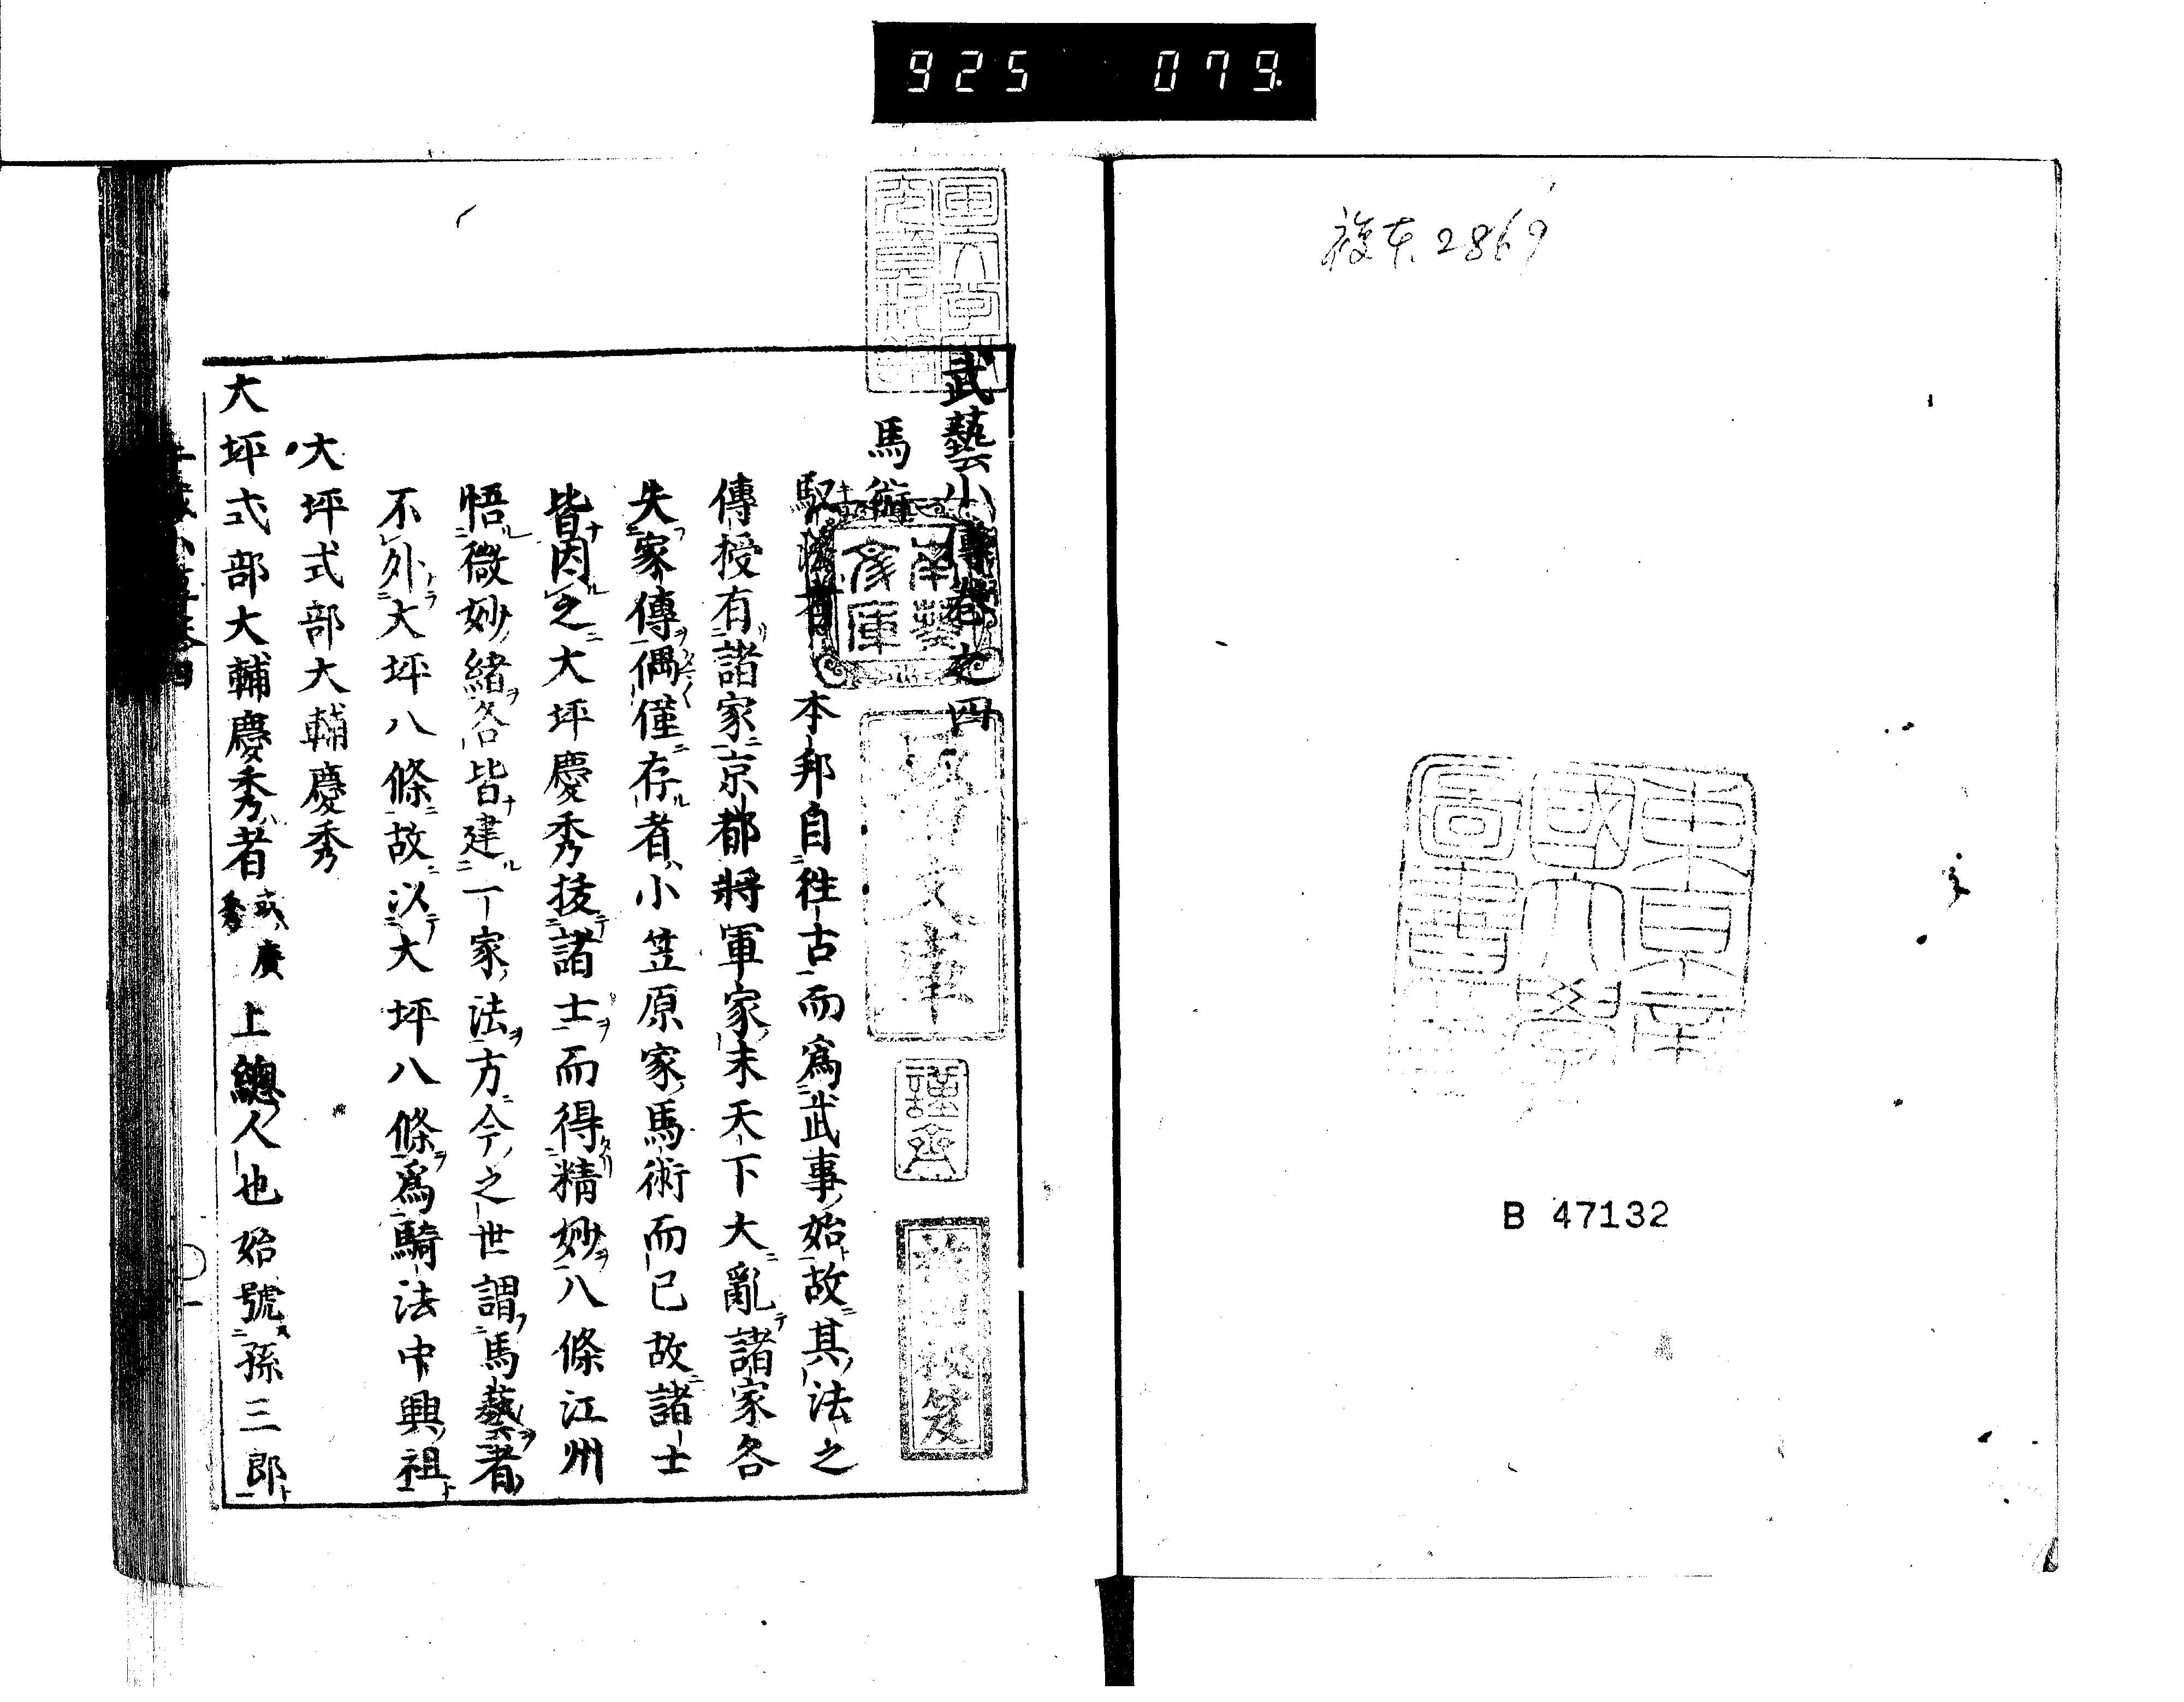 925 079
複本2869
東京帝
國大學
圖書印
B 47132
武藝小傳卷之四
馬術
馭法者本邦自徃古而爲武事始故其法之
傳授有諸家京都將軍家末天下大亂諸家各
失家傳偶僅存者小笠原家馬術而已故諸士
皆因之大坪慶秀拔諸士而得精妙八條江州
悟微妙緒各皆建一家法方今之世謂馬藝者
不外大坪八條故以大坪八條爲騎法中興祖
大坪式部大輔慶秀
大坪式部大輔慶秀者或廣秀上總人也始號孫三郎
南葵文庫
陽春文庫
謹齋